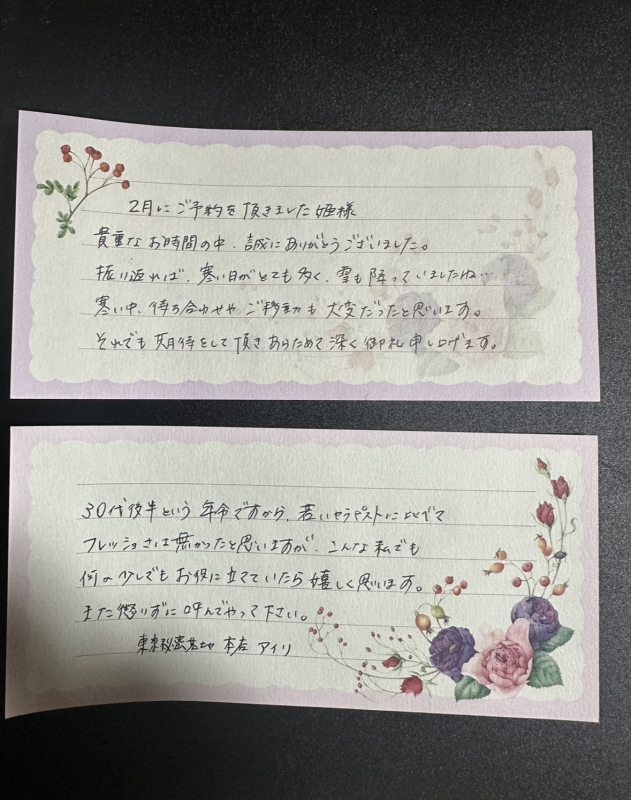 2月にご予約を頂きました姫様
貴重なお時間の中、誠にありがとうございました。
振り返れば、寒い日がとても多く、雪も降っていましたね…
寒い中、待ち合わせやご移動も大変だったと思います。
それでも期待をして頂きあらためて深く御礼申し上げます。
30代後半という年令ですから、若いセラピストに比べて
フレッシュさは無かったと思いますが、こんな私でも
何か少しでもお役に立てていたら嬉しく思います。
また懲りずに呼んでやって下さい。
東京秘密基地 本店 アイリ